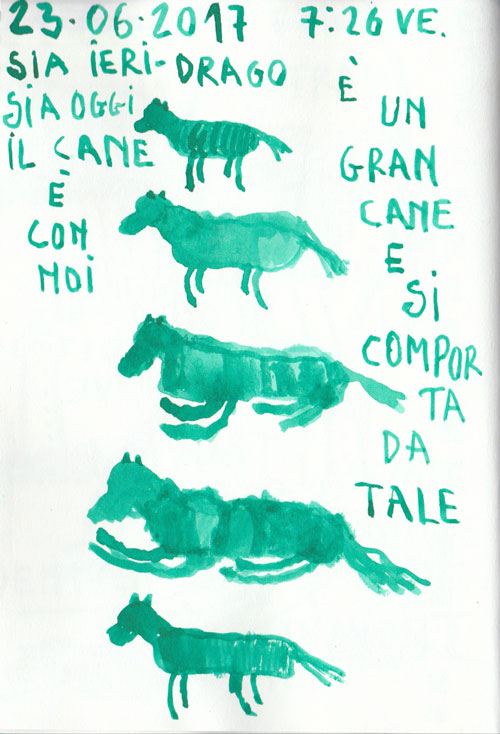 23·06·2017 7:26 VE.
SIA IERI-DRAGO
SIA OGGI
IL CANE
È
CON
NOI
È
UN
GRAN
CANE
E
SI
COMPOR
TA
DA
TALE